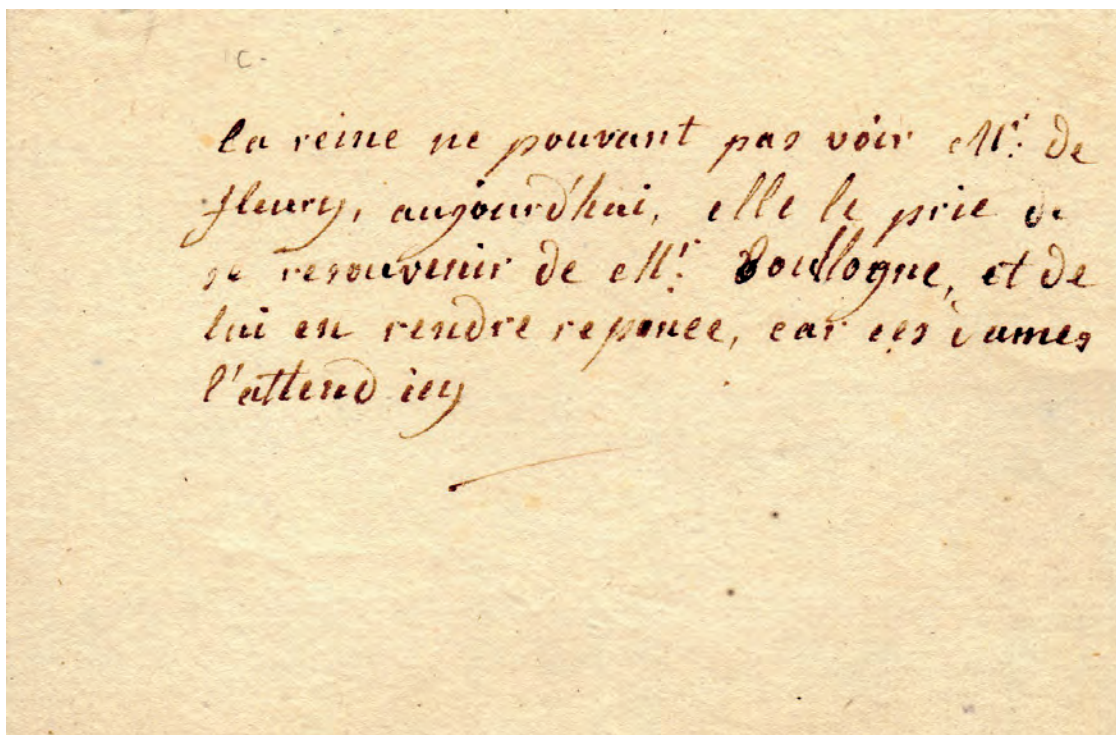 C.
la reine ne pouvant pas voir Mr. de
fleury, aujourd'hui, elle le prie de
se resouvenir de Mr. Boullogne, et de
lui en rendre reponce, car ces dames
l'attend icy